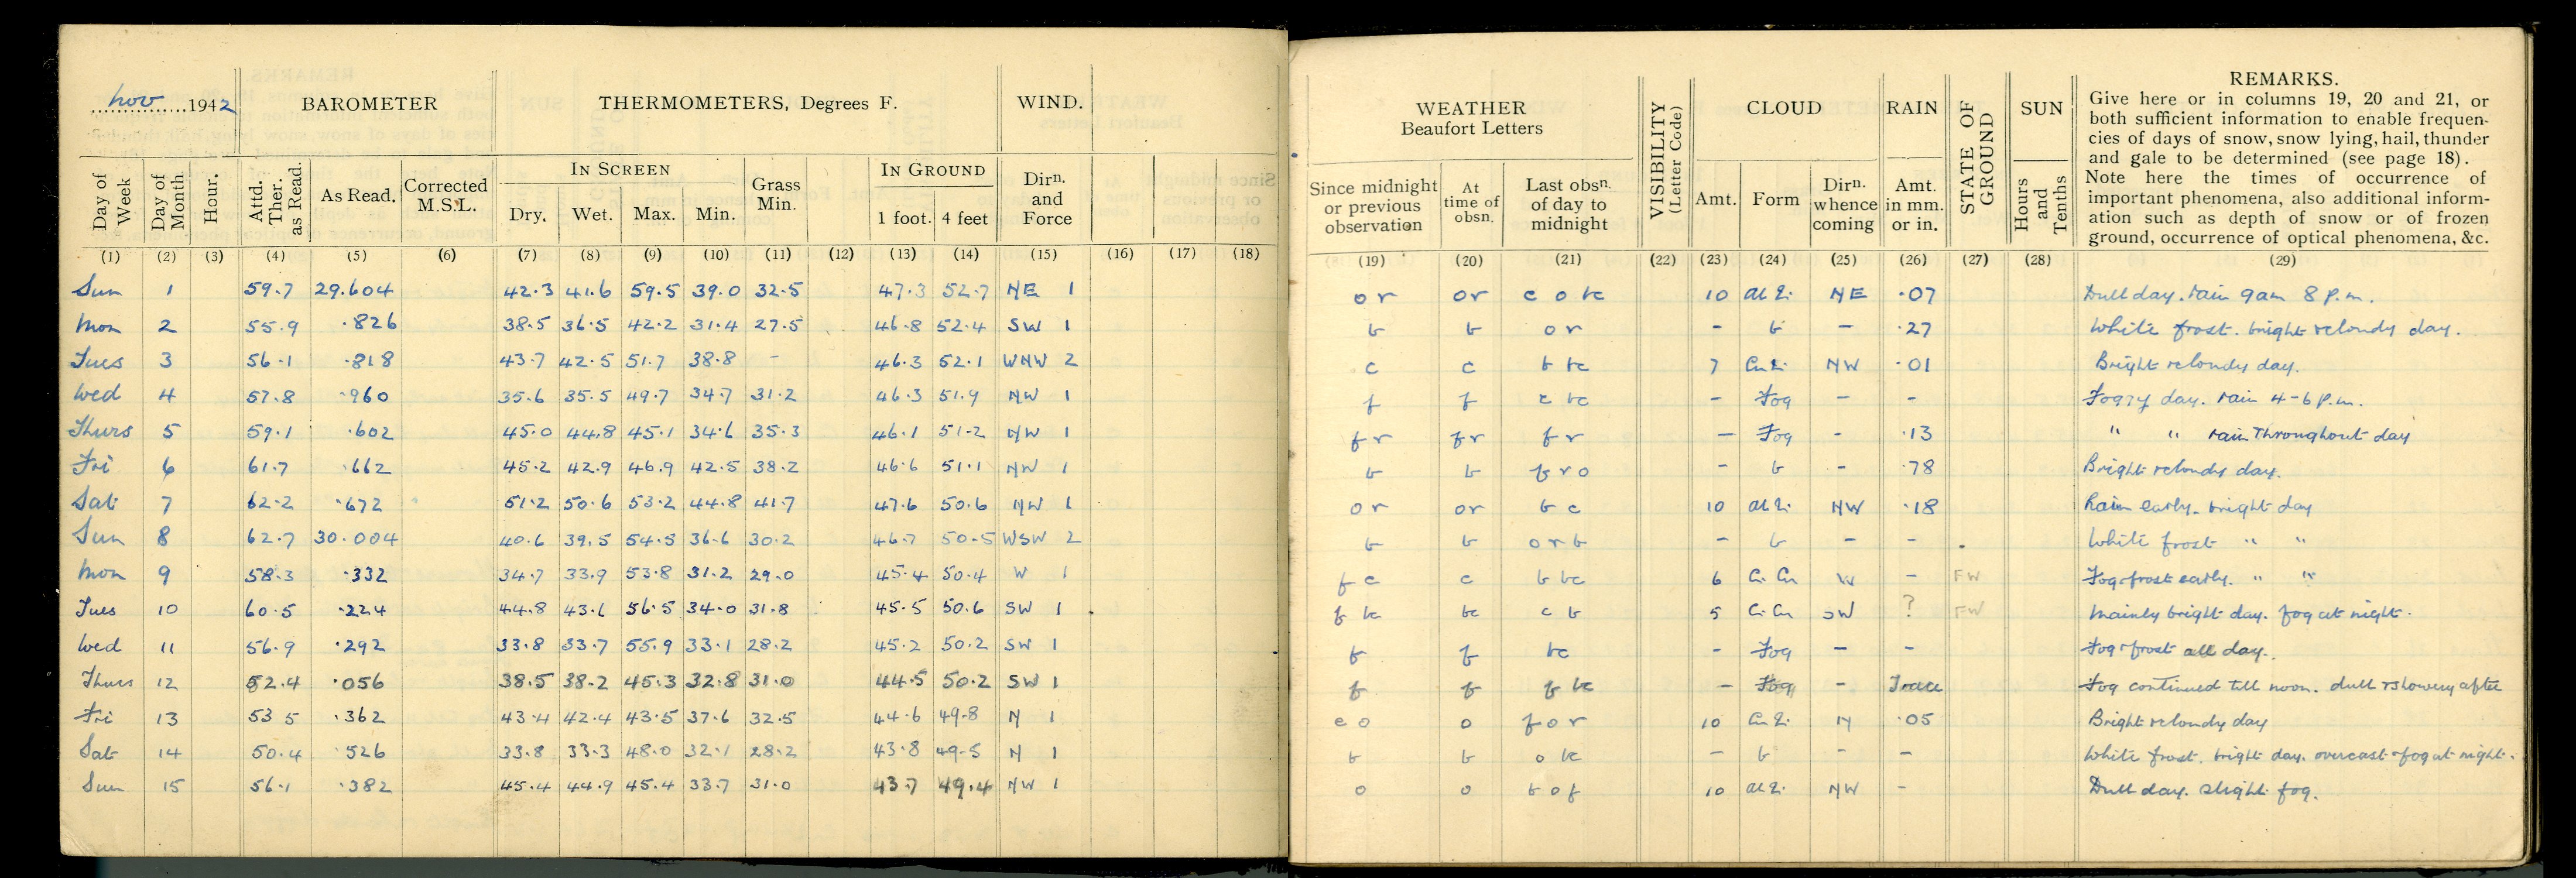 Nov 1942 BAROMETER THERMOMETERS, Degrees F. WIND.
Day of Week Day of Month Hour. Attd. Ther. as Read. As Read. Corrected M.S.L. IN SCREEN Dry. Wet. Max. Min. Grass Min. IN GROUND 1 foot. 4 feet Dirn. and Force
(1) (2) (3) (4) (5) (6) (7) (8) (9) (10) (11) (12) (13) (14) (15) (16) (17) (18)
Sun 1 59.7 29.604 42.3 41.6 59.5 39.0 32.5 47.3 52.7 NE 1
Mon 2 55.9 .826 38.5 36.5 42.2 31.4 27.5 46.8 52.4 SW 1
Tues 3 56.1 .818 43.7 42.5 51.7 38.8 - 46.3 52.1 WNW 2
Wed 4 57.8 .960 35.6 35.5 49.7 34.7 31.2 46.3 51.9 NW 1
Thurs 5 59.1 .602 45.0 44.8 45.1 34.6 35.3 46.1 51.2 NW 1
Fri 6 61.7 .662 45.2 42.9 46.9 42.5 38.2 46.6 51.1 NW 1
Sat 7 62.2 .672 51.2 50.6 53.2 44.8 41.7 47.6 50.6 NW 1
Sun 8 62.7 30.004 40.6 39.5 54.5 36.6 30.2 46.7 50.5 WSW 2
Mon 9 58.3 .332 34.7 33.9 53.8 31.2 29.0 45.4 50.4 W 1
Tues 10 60.5 .224 44.8 43.6 56.5 34.0 31.8 45.5 50.6 SW 1
Wed 11 56.9 .292 33.8 33.7 55.9 33.1 28.2 45.2 50.2 SW 1
Thurs 12 52.4 .056 38.5 38.2 45.3 32.8 31.0 44.5 50.2 SW 1
Fri 13 53 5 .362 43.4 42.4 43.5 37.6 32.5 44.6 49.8 N 1
Sat 14 50.4 .526 33.8 33.3 48.0 32.1 28.2 43.8 49.5 N 1
Sun 15 56.1 .382 45.4 44.9 45.4 33.7 31.0 43.7 49.4 NW 1
WEATHER Beaufort Letters VISIBILITY (Letter Code) CLOUD RAIN STATE OF GROUND SUN
Since midnight or previous observation At time of obsn. Last obsn. of day to midnight Amt. Form Dirn. whence coming Amt. in mm. or in. Hours and Tenths
REMARKS.
Give here or in columns 19, 20 and 21, or
both sufficient information to enable frequen-
cies of days of snow, snow lying, hail, thunder
and gale to be determined (see page 18).
Note here the times of occurrence of
important phenomena, also additional inform-
ation such as depth of snow or of frozen
ground, occurrence of optical phenomena, &c.
(19) (20) (21) (22) (23) (24) (25) (26) (27) (28) (29)
o r or c o bc 10 NE .07 Dull day. rain 9am 8 p.m.
b b o r - b - .27 White frost. bright & cloudy day.
c c b bc 7 NW .01 Bright & cloudy day.
f f c bc - Fog - - Foggy day. rain 4-6 p.m.
f r fr f r - Fog - .13 " " rain throughout day
b b f r o - b - .78 Bright & cloudy day.
o r or b c 10 NW .18 Rain early. bright day
b b o r b - b - - White frost " "
f c c b bc 6 Ci Cu W - FW Fog & frost early. " "
f bc bc c b 5 Ci Cu SW ? FW Mainly bright day. fog at night.
f f bc - Fog - - Fog & frost all day.
f f f bc - Fog - Trace Fog continued till noon. dull & showery after
c o o f o r 10 N .05 Bright & cloudy day
b b o bc - b - - White frost. bright day. overcast & fog at night.
o o b o f 10 NW - Dull day. slight fog.